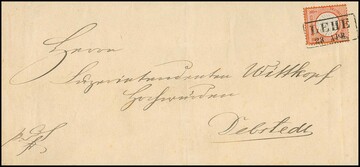 LEHE
28 APR
Herrn
Superintendenten Wittkopf
Hochwürden
Debstedt